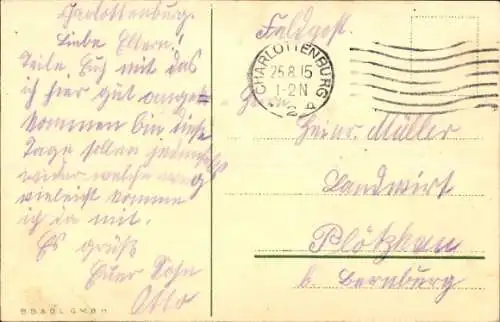 Charlottenburg.
Liebe Eltern!
Teile Euch mit das
ich hier gut ange-
kommen bin diese
Tage sollen jedenfalls
wider welche weg
vieleicht komme
ich da mit.
Es grüßt
Euer Sohn
Otto
Feldpost.
CHARLOTTENBURG
25.8.15
1-2N
2 b
Herrn
Heinr. Müller
Landwirt
Plötzkau
b. Bernburg